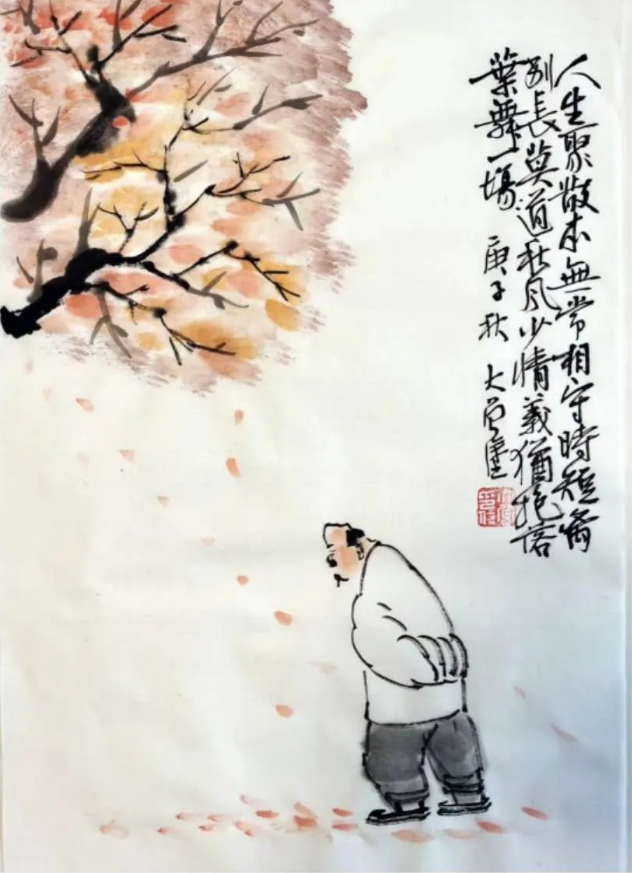 人生聚散本無常相守時短离
别長莫道秋風少情義猶抱落
葉舞一場 庚子秋 大